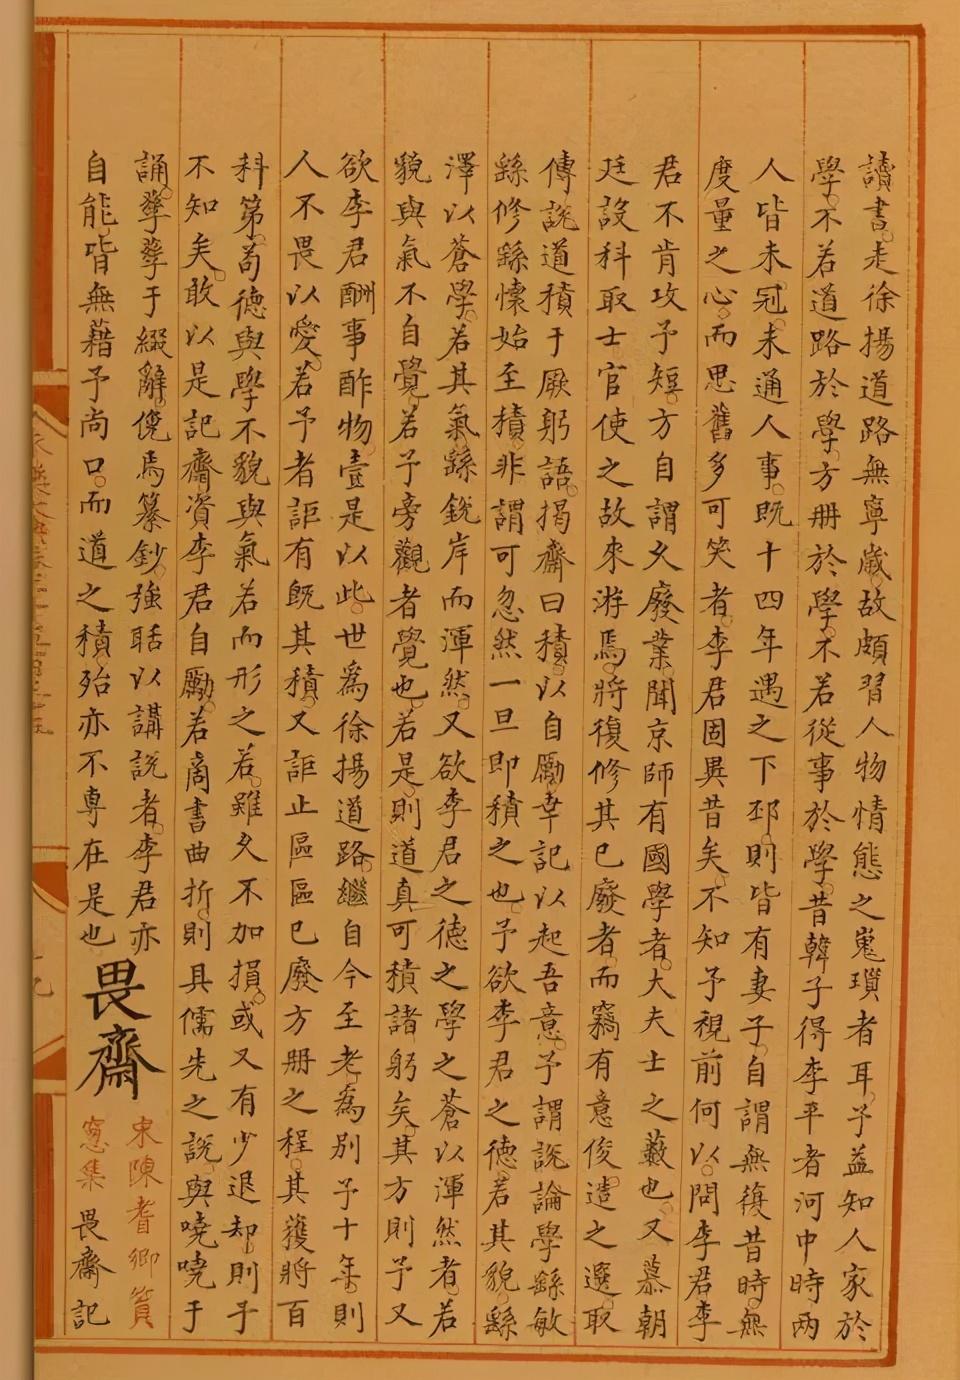 讀書走徐揚道路無寧歲故頗習人物情態之嵬瑣者耳予益知人家於
學不若道路於學方冊於學不若從事於學昔韓子得李平者河中時兩
人皆未冠未通人事既十四年遇之下邳則皆有妻子自謂無復昔時無
度量之心而思舊多可笑者李君固異昔矣不知予視前何以問李君李
君不肯攻予短方自謂久廢業聞京師有國學者大夫士之藪也又慕朝
廷設科取士官使之故來游焉將復修其已廢者而竊有意俊造之選取
傅說道積于厥躬語揭齋曰積以自勵幸記以起吾意予謂說論學繇敏
繇修繇懷始至積非謂可忽然一旦即積之也予欲李君之德若其貌繇
澤以蒼學若其氣繇銳岸而渾然又欲李君之德之學之蒼以渾然者若
貌與氣不自覺若予旁觀者覺也若是則道真可積諸躬矣其方則予又
欲李君酬事酢物壹是以此世爲徐揚道路繼自今至老爲別予十年則
人不畏以愛若予者詎有既其積又詎止區區已廢方冊之程其獲將百
科第苟德與學不貌與氣若而形之若雖久不加損或又有少退却則予
不知矣敢以是記齋資李君自勵若商書曲折則具儒先之說與嘵嘵于
誦孳孳于綴辭俛焉纂鈔強聒以講說者李君亦
自能皆無藉予尚口而道之積殆亦不專在是也
畏齋
宋陳耆卿篔
窻集
畏齋記
永樂大典卷二千五百三十五